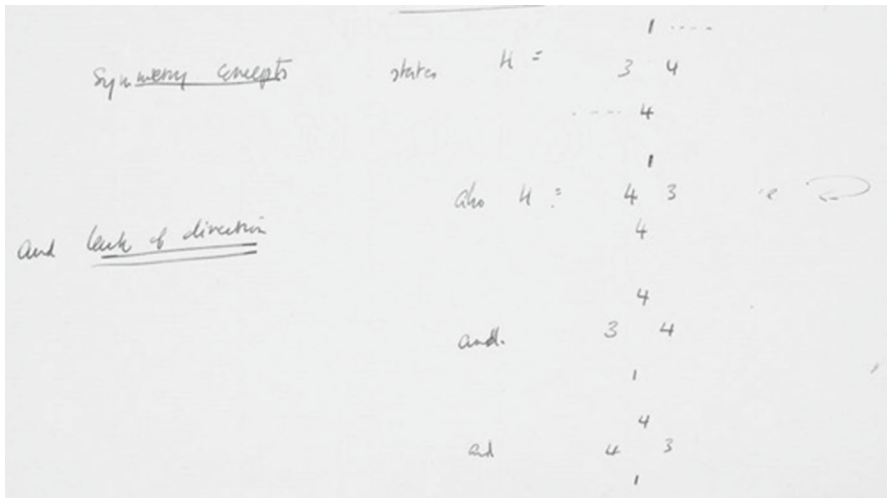 1 ....
Symmetry concepts states H = 3 4
.... 4
1
also H = 4 3 ie
4
and lack of direction
4
and. 3 4
1
4
and 4 3
1